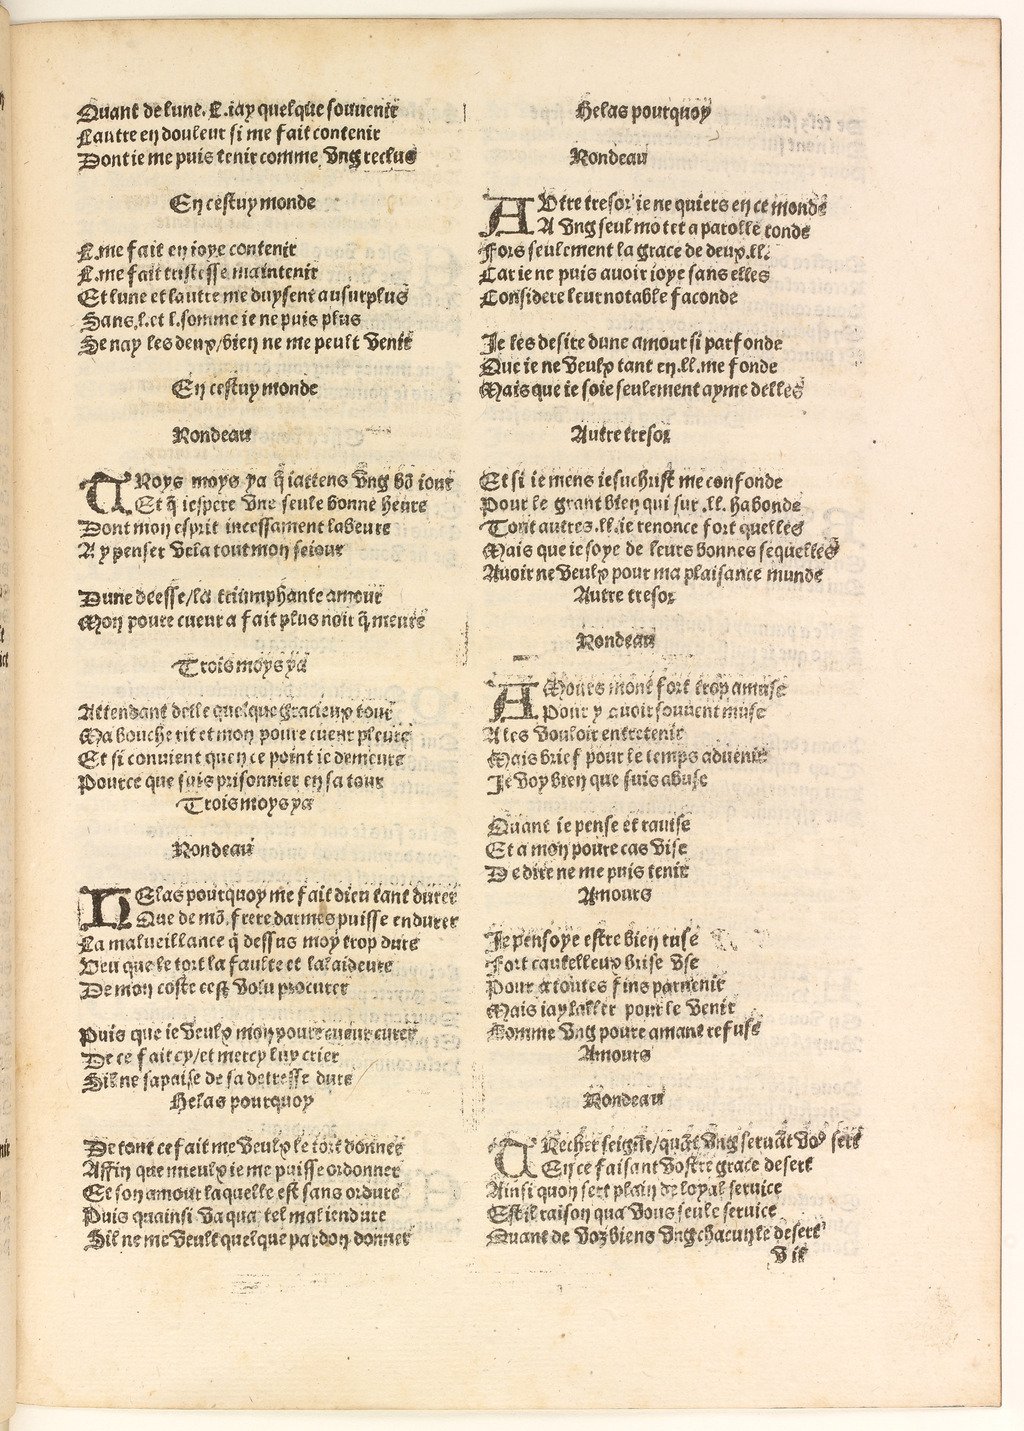 Quant de lune. L. iay quelque souuenir
Lautre en douleur si me fait contenir
Dont ie me puis tenir comme vng reclus
En cestuy monde
L. me fait en ioye contenir
L. me fait tristesse maintenir
Et lune et lautre me duysent au surplus
Sans .l. et l. somme ie ne puis plus
Se nay les deux/bien ne me peult venir
En cestuy monde
Rondeau
TRoys moys ya q̃ iattens vng bõ iour
Et q̃ iespere vne seule bonne heure
Dont mon esprit incessament labeure
A y penser vela tout mon seiour
Dune deesse/la triumphante amour
Mon poure cueur a fait plus noir q̃ meure
Trois moys ya
Attendant delle quelque gracieux tour
Ma bouche rit et mon poure cueur pleure
Et si conuient quen ce point ie demeure
Pource que suis prisonnier en sa tour
Trois moys ya
Rondeau
HElas pourquoy me fait dieu tant durer
Que de mõ frere darmes puisse endurer
La malueillance q̃ dessus moy trop dure
Veu que le tort la faulte et la laidure
De mon coste cest volu procurer
Puis que ie veulx mon poure cueur curer
De ce fait cy/et mercy luy crier
Sil ne sapaise de sa detresse dure
Helas pourquoy
De tout ce fait me veulx le tort donner
Affin que mieulx ie me puisse ordonner
Et son amour laquelle est sans ordure
Puis quainsi va qua tel mal iendure
Sil ne me veult quelque pardon donner
Helas pourquoy
Rondeau
AVtre tresor ie ne quiers en ce monde
A vng seul mot et a parolle ronde
Fors seulement la grace de deux .ll.
Car ie ne puis auoir ioye sans elles
Considere leur notable faconde
Je les desire dune amour si parfonde
Que ie ne veulx tant en .ll. me fonde
Mais que ie soie seulement ayme delles
Autre tresor
Et si ie mens iesuchrist me confonde
Pour le grant bien qui sur .ll. habonde
Tout autres .ll. ie renonce fort quelles
Mais que ie soye de leurs bonnes sequelles
Auoir ne veulx pour ma plaisance munde
Autre tresor
Rondeau
AMours mont fort trop amuse
Pour y auoir souuent muse
A les vouloir entretenir
Mais brief pour le temps aduenir
Je voy bien que suis abuse
Quant ie pense et rauise
Et a mon poure cas vise
De dire ne me puis tenir
Amours
Je pensoye estre bien ruse
Fort cautelleux brise vse
Pour a toutes fins paruenir
Mais iay pour le venir
Comme vng poure amant refuse
Amours
Rondeau
TRecher seigñr/quãt vng seruãt voꝰ sert
En ce faisant vostre grace desert
Ainsi quon sert plain de loyal seruice
Est il raison qua vous seule seruice
Quant de voz biens vng chacun le desert